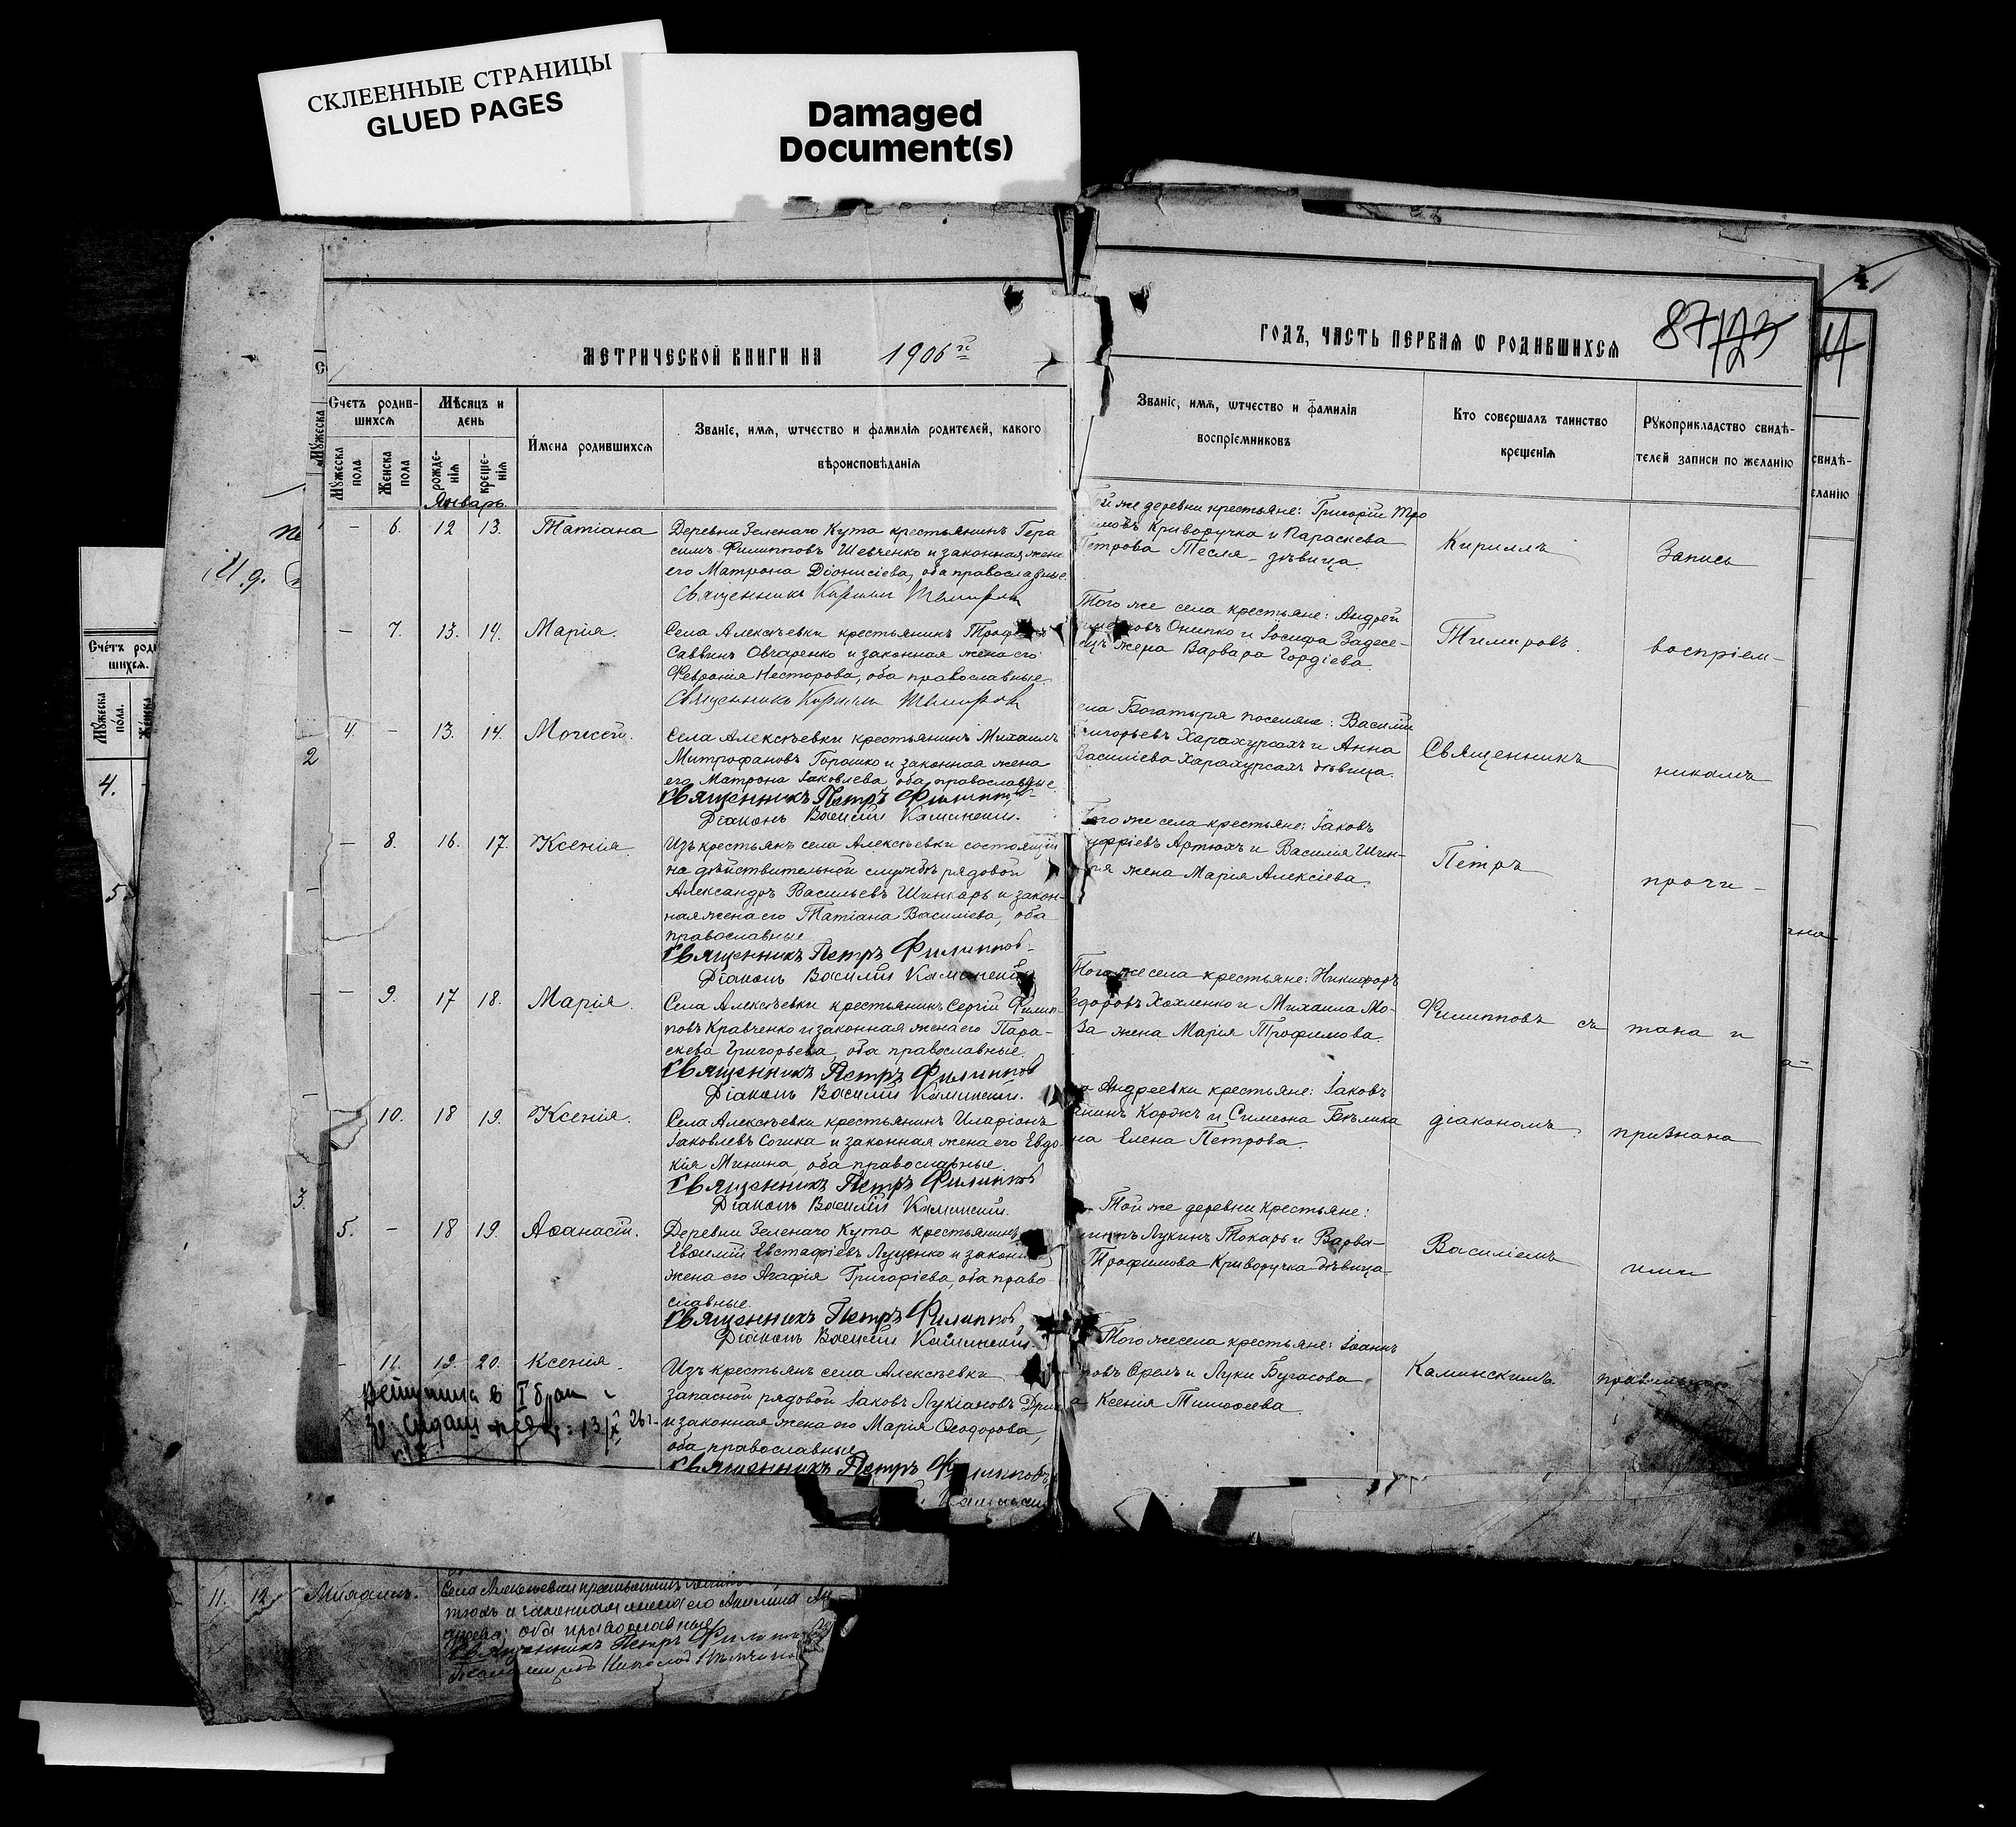 СКЛЕЕННЫЕ СТРАНИЦЫ
GLUED PAGES
Damaged
Document(s)
МЕТРИЧЕСКОЙ КНИГИ НА 1906 й
Счетъ родив-
шихсѧ
Мѣсяцъ и
день
Мꙋжеска
пола
Женска
пола
рожде-
нїѧ
креще-
нїѧ
Имена родившихсѧ
Званїе, имѧ, ѡтчество и фамилїѧ родителей, какого
вѣроисповѣданїѧ
Январь.
- 6. 12 13. Татіана
Деревни Зеленаго Кута крестьянинъ Гера
симъ Филипповъ Шевченко и законная жена
его Матрона Діонисіева, оба православные
Священникъ Кириллъ Тимировъ
- 7. 13. 14. Марія.
Села Алексѣевки крестьянинъ
Саввинъ Овчаренко и законная жена его
Феворонія Несторова, оба православные.
Священникъ Кириллъ Тимировъ
4. - 13. 14. Моисей.
Села Алексѣевки крестьянинъ Михаилъ
Митрофановъ Горошко и законная жена
его Матрона Іаковлева оба православные.
Священникъ Петръ Филиппов
Діаконъ Василій Каминский.
- 8. 16. 17. Ксенія
Изъ крестьянъ села Алексѣевки состоящій
на дѣйствительной службѣ рядовой
Александръ Васильевъ Шинкарь и закон-
ная жена его Татіана Василіева, оба
православные
Священникъ Петръ Филиппов
Діаконъ Василій Каминский
- 9. 17 18. Марія.
Села Алексѣевки крестьянинъ Сергій Филип-
повъ Кравченко и законная жена его Пара-
скева Григорьева, оба православные.
Священникъ Петръ Филиппов
Діаконъ Василій Каминский.
10. 18 19. Ксенія.
Села Алексѣевки крестьянинъ Иларіонъ
Іаковлевъ Сошка и законная жена его Евдо-
кія Минина, оба православные.
Священникъ Петръ Филиппов
Діаконъ Василій Каминский.
5. - 18 19. Аѳанасій.
Деревни Зеленаго Кута крестьянинъ
Евстафіевъ Луценко и законная
жена его Агафія Григоріева, оба право-
славные.
Священникъ Петръ Филиппов
Діаконъ Василій Каминский.
- 11. 19. 20. Ксенія.
Изъ крестьянъ села Алексѣевки
запасной рядовой Іаковъ Лукіановъ
и законная жена его Марія Ѳеодорова,
оба православные
Священникъ Петръ Филипповъ
ГОДЪ, ЧАСТЬ ПЕРВАѦ Ѡ РОДИВШИХСѦ
87 123
Званїе, имѧ, ѡтчество и фамилїѧ
воспрїемниковъ
Кто совершалъ таинство
крещенїѧ
Рꙋкоприкладство свидѣ-
телей записи по желанїю
Той же деревни крестьяне: Григорій Тро
имовъ Криворучка и Параскева
Петрова Тесля - дѣвица.
Кириллъ
Запись
Того же села крестьяне: Андрей
Онипко и Іосифа Задесе-
жена Варвара Гордіева
Тимировъ.
воспріем-
села Богатыря поселяне: Василій
Григорьевъ Харахурсахъ и Анна
Василіева Харахурсахъ дѣвица.
Священникъ
никамъ
Того же села крестьяне: Іаковъ
уфріевъ Артюхъ и Василія Шин-
ря жена Марія Алексіева.
Петръ
прочи-
Того же села крестьяне: Никифоръ
едоровъ Хохленко и Михаила Мо-
за жена Марія Трофимова.
Филипповъ съ
тана и
Андреевки крестьяне: Іаковъ
нинъ Коржъ и Симеона
на Елена Петрова.
діакономъ
признана
Той же деревни крестьяне:
Лукинъ Токарь и Варва-
Трофимова Криворучка дѣвица
Василіемъ
ими
Того же села крестьяне: Іоаннъ
ровъ Орелъ и Луки Бугасова
а Ксенія Тимоѳеева
Каминскимъ.
правильною
Счетъ роди
шихсѧ.
Мꙋжеска
пола.
4.
5
2
3
свидѣ-
еланїю
11. 12 Михаилъ.
Села Алексѣевки крестьянинъ
и законная жена его Акилина
оба православные
Священникъ Петръ